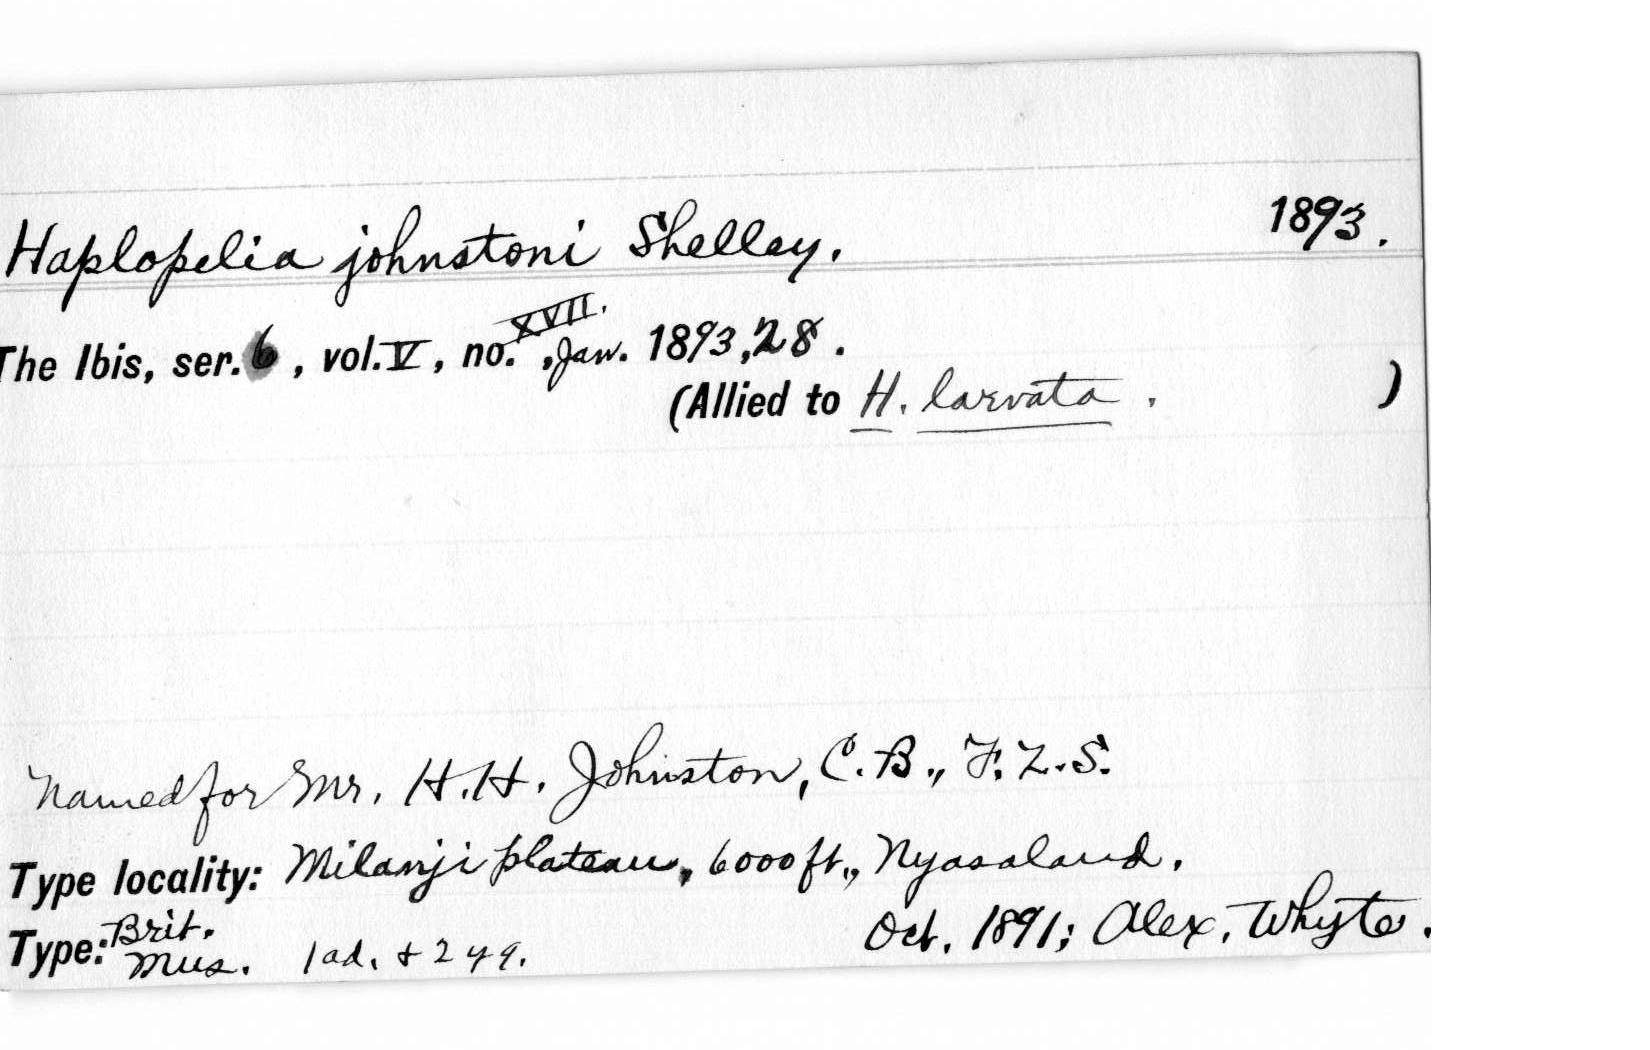 Haplopelia johnstoni Shelley. 1893.
The Ibis, ser. 6, vol. V, no. XVII., Jan. 1893, 28.
(Allied to H. larvata. )
Named for Mr. H. H. Johnston, C. B., F. Z. S.
Type locality: Milanji plateau, 6000 ft., Nyasaland.
Type: Brit. Mus. 1 ad. + 2 yg. Oct. 1891; Alex. Whyte.